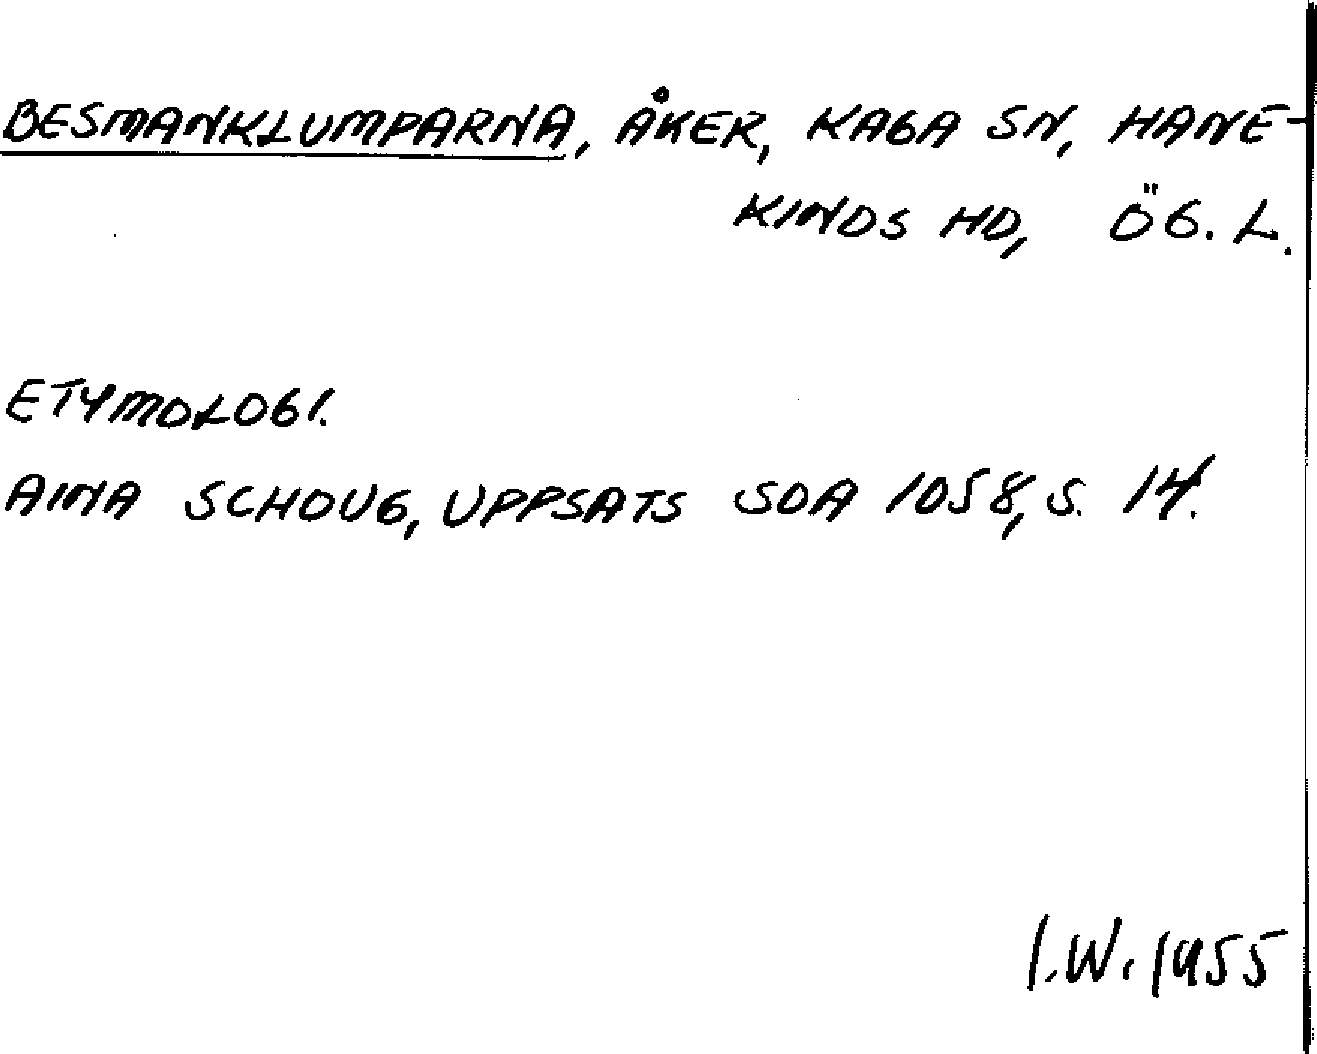 BESMANKLUMPARNA, ÅKER, KAGA SN, HANE-
KINDS HD, ÖG. L.
ETYMOLOGI.
AINA SCHOUG, UPPSATS SOA 1058, S. 14.
I.W. 1955